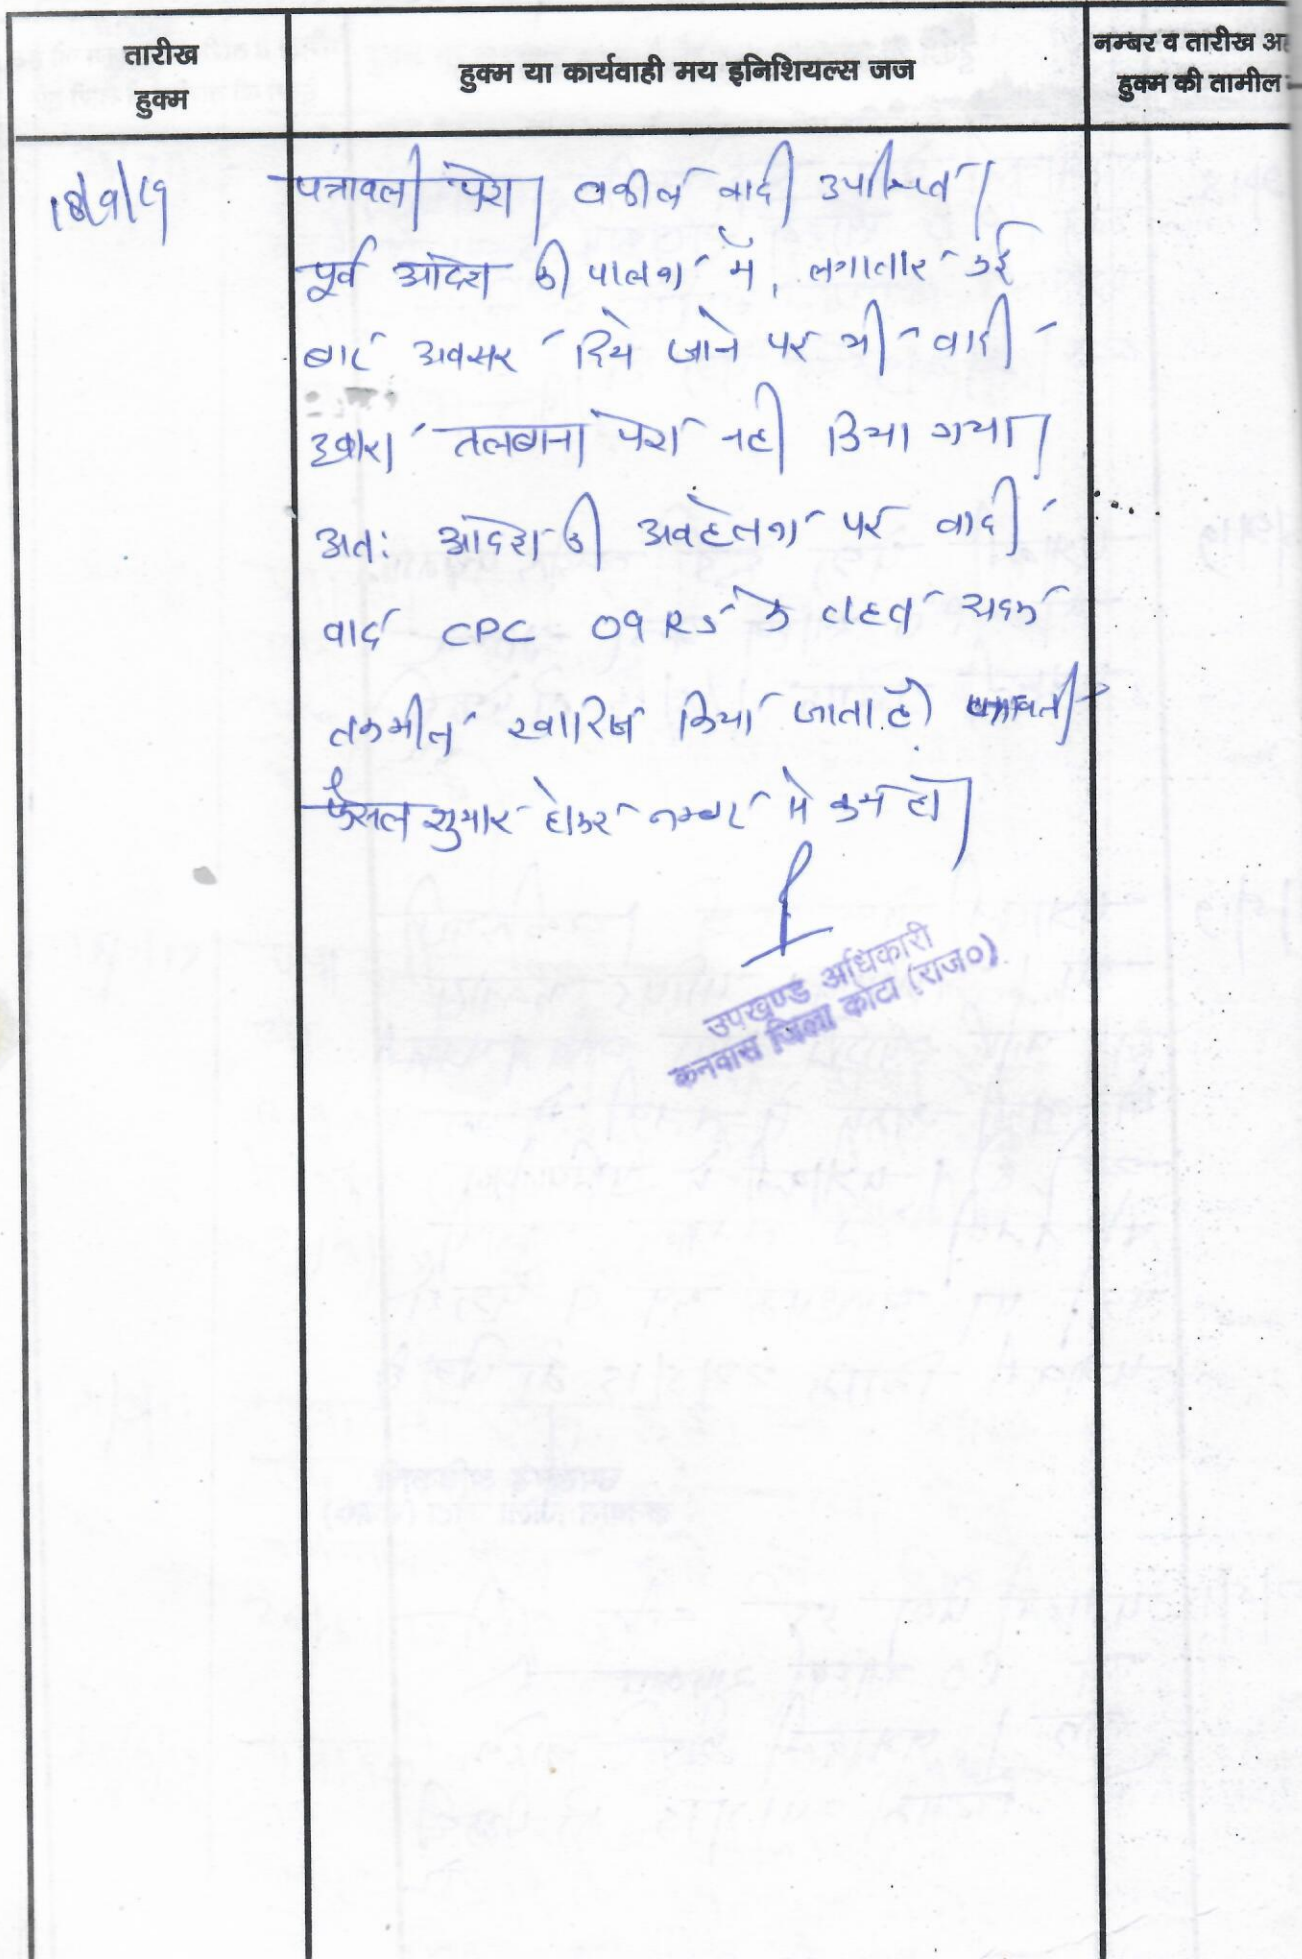 तारीख
हुक्म
हुक्म या कार्यवाही मय इनिशियल्स जज
नम्बर व तारीख अह
हुक्म की तामील
पत्रावली पेश। वकील वादी उपस्थित।
पूर्व आदेश की पालना में, लगातार कई
बार अवसर दिये जाने पर भी वादी
द्वारा तलबाना पेश नही किया गया।
अतः आदेश की अवहेलना पर वादी
वाद CPC 09 R5 के तहत अदम
तकमील खारिज किया जाता है। पत्रावली
फैसल शुमार होकर नम्बर से कम हो।
उपखण्ड अधिकारी
कनवास जिला कोटा (राज०)